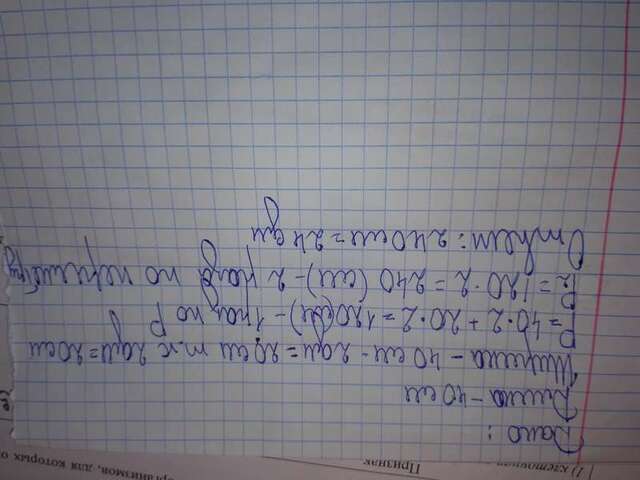 Дано:
Длина - 40 см
Ширина - 40 см - 2дм = 20 см т.к 2дм = 20см
P = 40·2 + 20·2 = 120(см) - 1 раз по P
P₂ = 120·2 = 240 (см) - 2 раза по периметру
Ответ: 240см = 24 дм
1) клеточная
Признак
организмов, для которых о